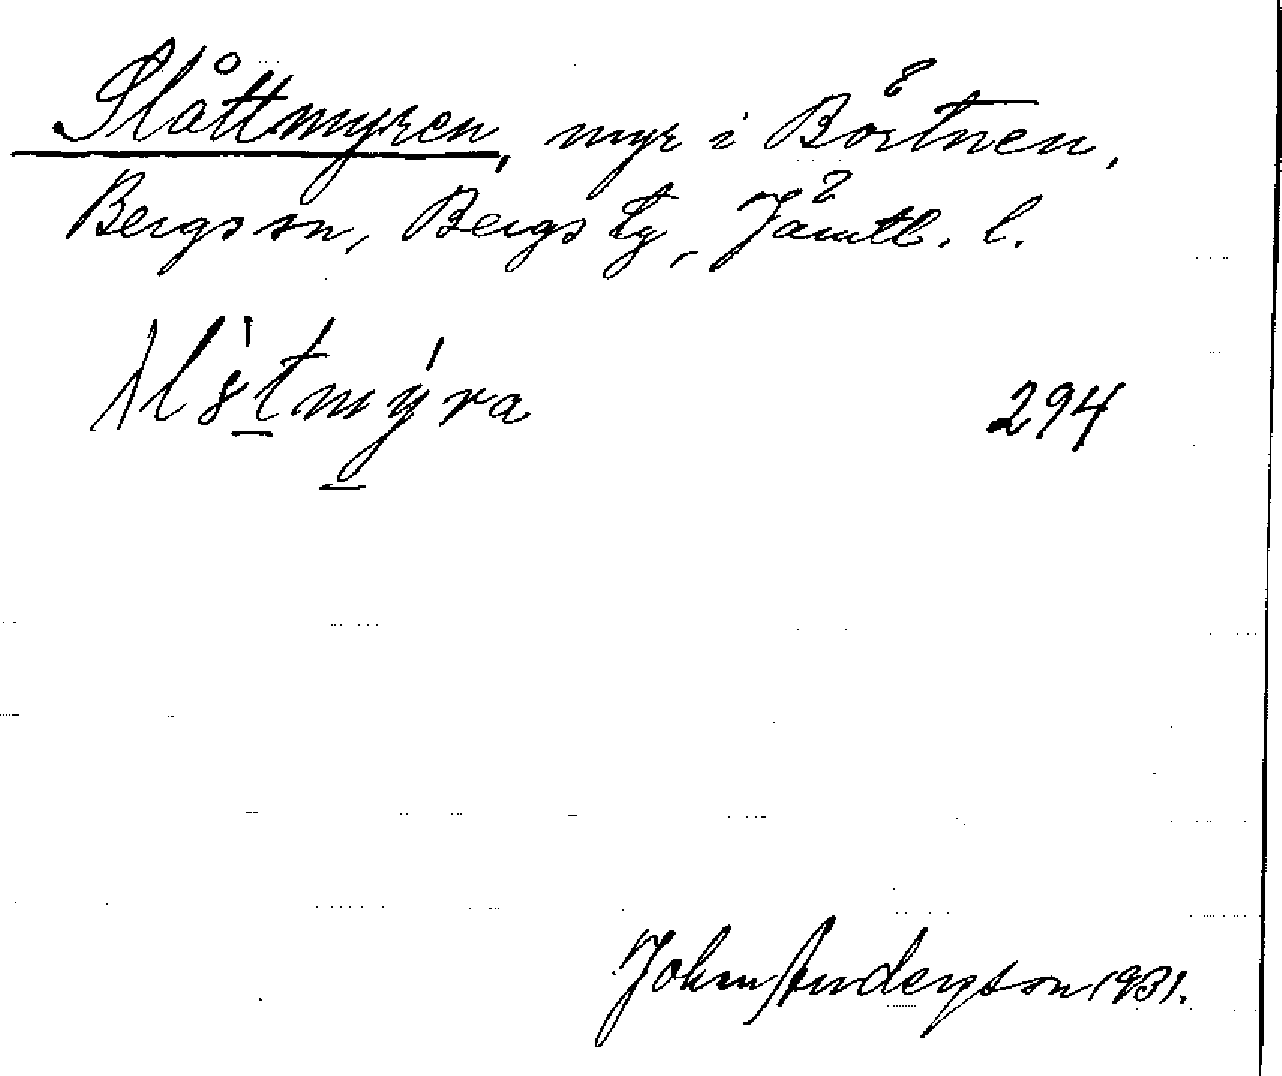 Slåttmyren, myr i Börtnen,
Bergs sn, Bergs tg, Jämtl. l.
294
John Andersson 1931.